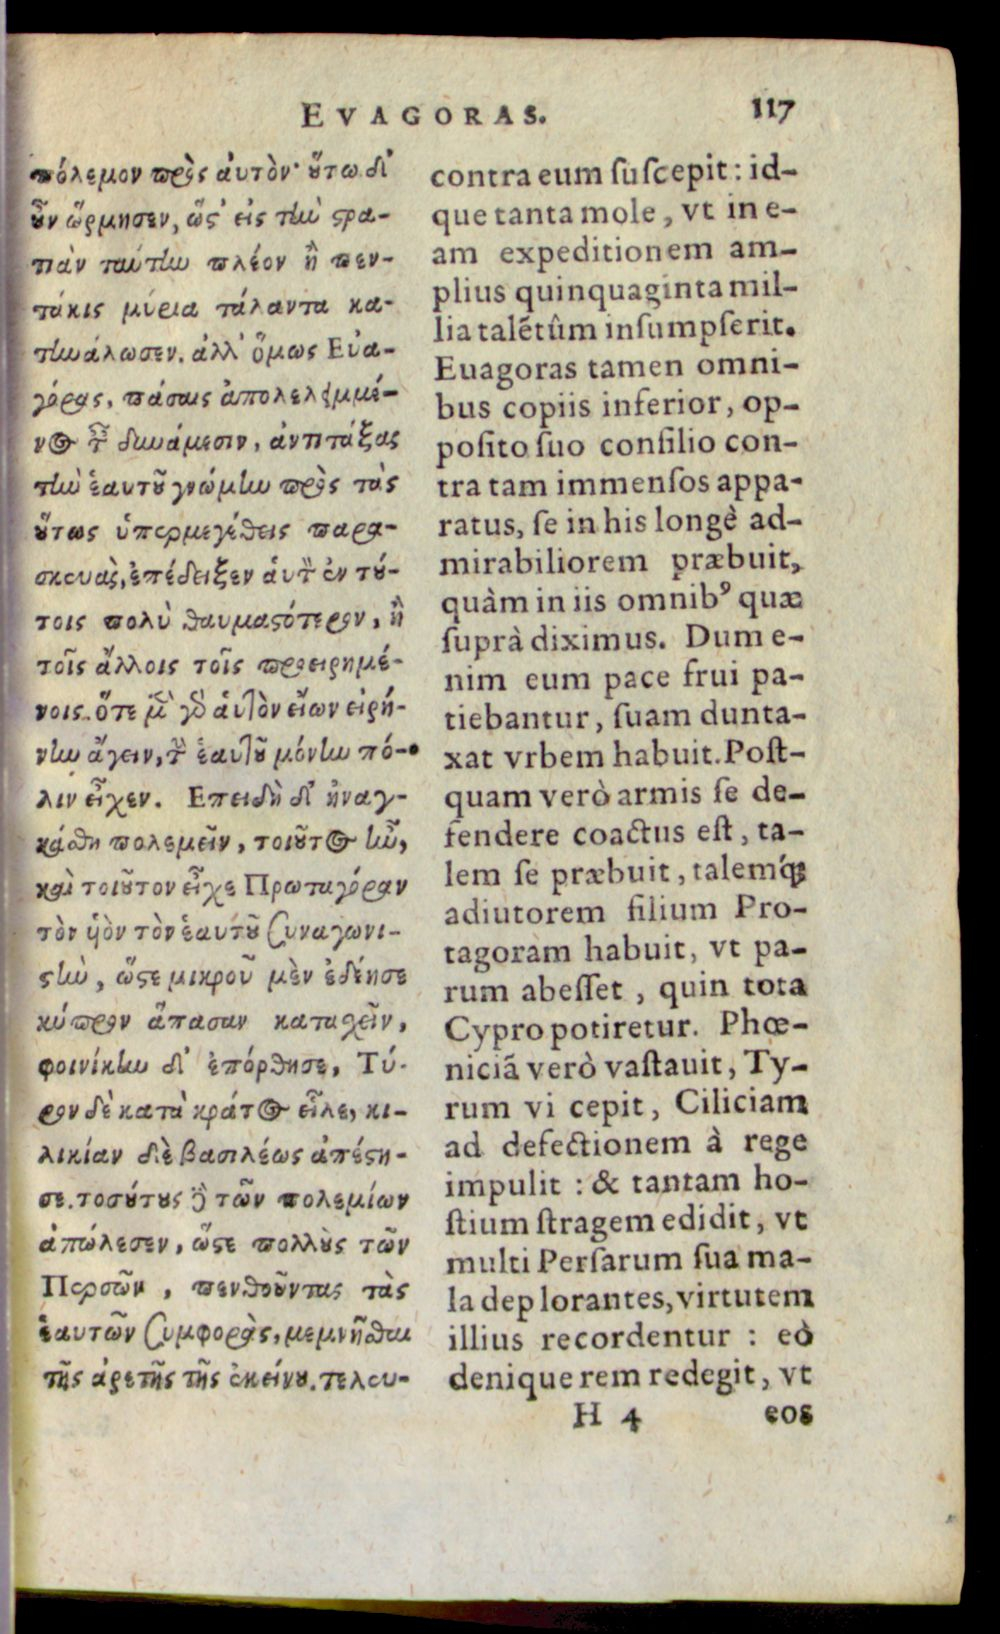 EVAGORAS.
117
πόλεμον πρὸς ἀυτὸν· ὅτω δ'
ὖν ὥρμησεν, ὥς' εἰς τίω ςρα-
πὰν ταύτίω πλέον ἢ πεν-
τάκις μύρια τάλαντα κα-
τίωάλωσεν. ἀλλ' ὅμως Εὐα-
γόρας, πάσαις ἀπολελειμμέ-
νος τ δυνάμεσιν, ἀντιτάξας
τίω ἑαυτȣ͂ γνώμίω πρὸς τὰς
ȣ̔́τως ὑπερμεγέθεις παρα-
σκευὰς, ἐπέδειξεν ἁυτ ἐν τȣ́-
τοις πολὺ θαυμαςότερον, ἢ
τοῖς ἄλλοις τοῖς προειρημέ-
νοις. ὅτε μ γδ ἀυτὸν εἴων εἰρή-
νίω ἄγειν, τ ἑαυτȣ͂ μόνίω πό-
λιν εἶχεν. Επειδὴ δ' ἠναγ-
κάσθη πολεμεῖν, τοιȣ͂τος ἰῶ,
καὶ τοιȣ͂τον εἶχε Πρωταγόραν
τὸν ὑὸν τὸν ἑαυτȣ͂ συναγωνι-
ςίω, ὥςε μικροῦ μὲν ἐδέησε
κύπρον ἅπασαν κατασχεῖν,
φοινίκίω δ' ἐπόρθησε, Τύ-
ρον δὲ κατὰ κράτος εἷλε, κι-
λικίαν δὲ βασιλέως ἀπέςη-
σε. τοσȣ́τȣς δ τῶν πολεμίων
ἀπώλεσεν, ὥςε πολλȣ̀ς τῶν
Περσῶν, πενθοῦντας τὰς
ἑαυτῶν συμφορὰς, μεμνῆσθαι
τῆς ἀρετῆς τῆς ἐκείνȣ. τελευ-
contra eum ſuſcepit: id-
que tanta mole, vt in e-
am expeditionem am-
plius quinquaginta mil-
lia talẽtûm inſumpſerit.
Euagoras tamen omni-
bus copiis inferior, op-
poſito ſuo conſilio con-
tra tam immenſos appa-
ratus, ſe in his longè ad-
mirabiliorem præbuit,
quàm in iis omnibꝰ quæ
ſuprà diximus. Dum e-
nim eum pace frui pa-
tiebantur, ſuam dunta-
xat vrbem habuit. Poſt-
quam verò armis ſe de-
fendere coactus eſt, ta-
lem ſe præbuit, talemq́;
adiutorem filium Pro-
tagoram habuit, vt pa-
rum abeſſet, quin tota
Cypro potiretur. Phœ-
niciã verò vaſtauit, Ty-
rum vi cepit, Ciliciam
ad defectionem à rege
impulit: & tantam ho-
ſtium ſtragem edidit, vt
multi Perſarum ſua ma-
la deplorantes, virtutem
illius recordentur: eò
denique rem redegit, vt
H 4
eos